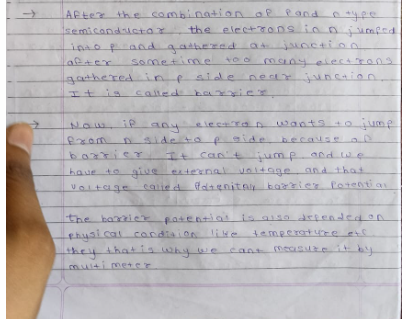 → After the combination of P and n type
semiconductor, the electrons in n jumped
into p and gathered at junction
after sometime too many electrons
gathered in p side near junction.
It is called barrier.
→ Now, if any electron wants to jump
from n side to p side, because of
barrier It can't jump and we
have to give external voltage and that
voltage called barrier Potential
The barrier potential is also depended on
physical condition like temperature etc
they that is why we cant measure it by
multimeter